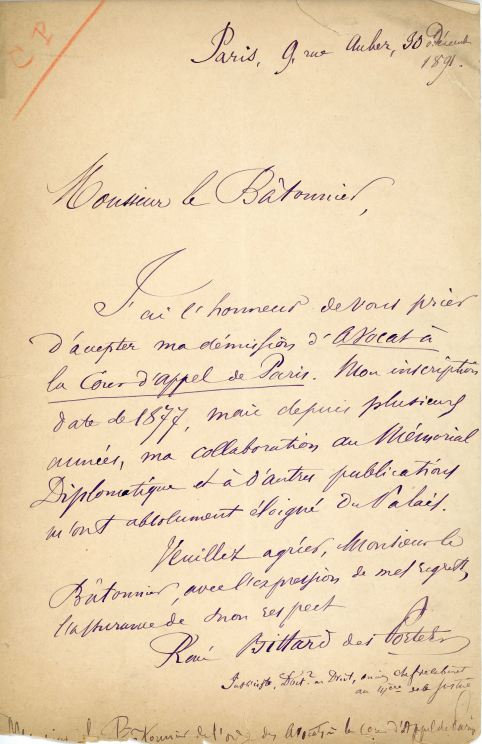 CP
Paris, 9, rue Auber, 30 Décemb
1891.
Monsieur le Bâtonnier,
J'ai l'honneur de vous prier
d'accepter ma démission d'Avocat à
la Cour d'appel de Paris. Mon inscription
date de 1877, mais depuis plusieurs
années, ma collaboration au Mémorial
Diplomatique et à d'autres publications
m'ont absolument éloigné du Palais.
Veuillez agréer, Monsieur le
Bâtonnier, avec l'expression de mes regrets,
l'assurance de mon respect
René Bittard des Portes
Doct. en Droit, chef de cabinet
au de la justice
Bâtonnier de l'ordre des Avocats à la cour d'Appel de Paris